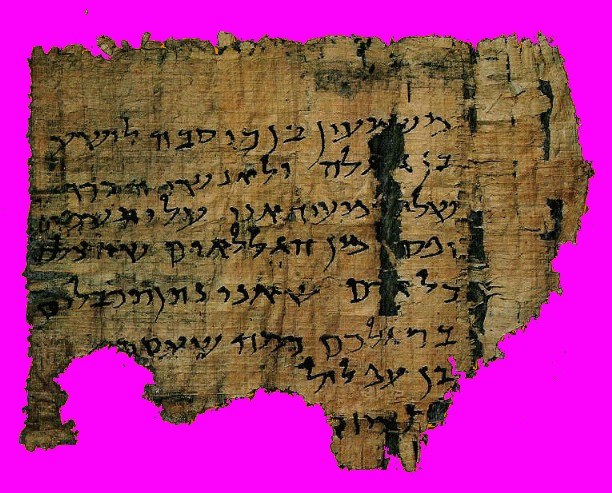 משמעון בן כוסבה לישע
בן גלגלה ולאנשי הכרך
שלו מעיד אני עלי ת שמים
יפס מן הגללאים שהצלכם
כל אדם שאני נתן תכבלים
ברגלכם כמה שעסת
בן עפלול